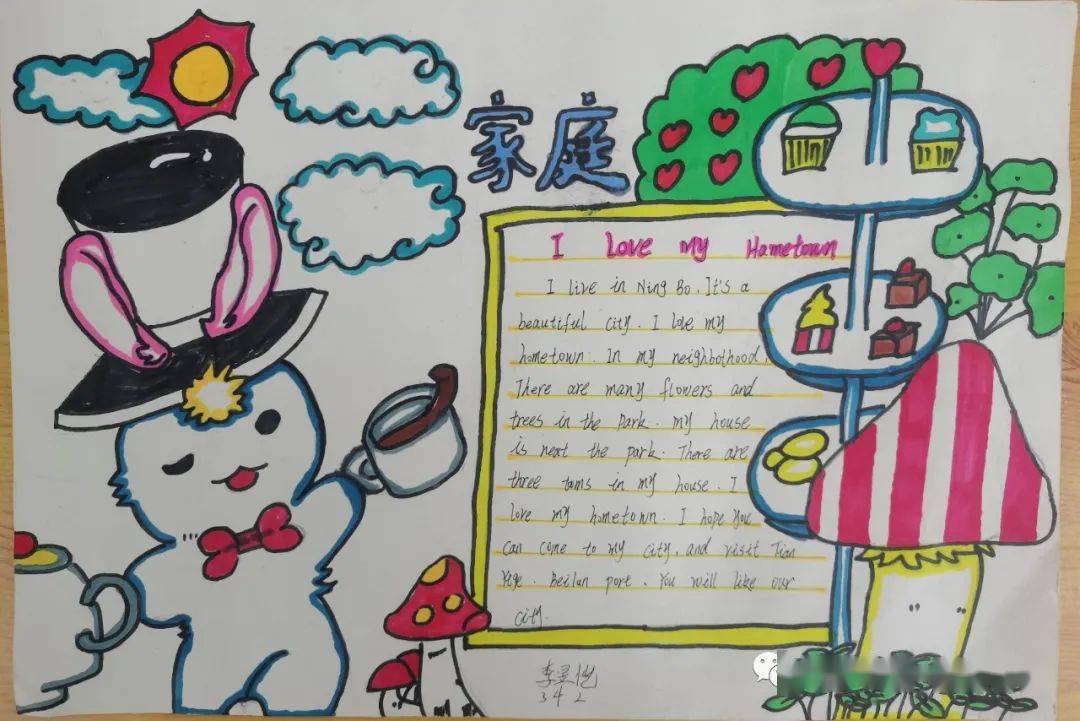 家庭
I Love My Hametown
I live in Ning Bo. It's a
beautiful city. I love my
hometown. In my neighbothood,
There are many flowers and
trees in the park. my house
is next the park. There are
three toms in my house. I
love my hometown. I hope you
can come to my city, and visit Tian
Yige. Beilun port. You will like our
city.
李
3 4 2